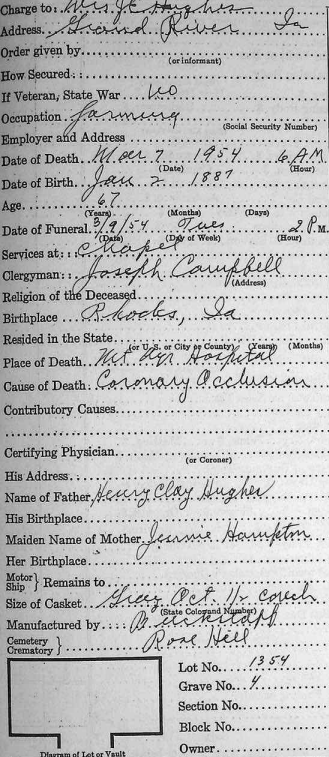 Charge to: Mrs. J E Hughes
Address Grand River Ia
Order given by
(or informant)
How Secured:
If Veteran, State War no
Occupation Farming
(Social Security Number)
Employer and Address
Date of Death Mar 7 1954 6 A.M
(Date) (Hour)
Date of Birth Jan 2 1887
Age 67
(Years) (Months) (Days)
Date of Funeral 3/9/54 Tues 2 P.M.
(Date) (Day of Week) (Hour)
Services at: Chapel
Clergyman: Joseph Campbell
(Address)
Religion of the Deceased
Birthplace Rhodes, Ia
Resided in the State
(or U.S. or City or County) (Years) (Months)
Place of Death Mt Ayr Hospital
Cause of Death: Coronary Occlusion
Contributory Causes
Certifying Physician
(or Coroner)
His Address
Name of Father Henry Clay Hughes
His Birthplace
Maiden Name of Mother Jennie Hampton
Her Birthplace
Motor Ship } Remains to
Size of Casket Oct. 1/2 couch
(State Color and Number)
Manufactured by
Cemetery Crematory } Rose Hill
Lot No. 1354
Grave No. 4
Section No.
Block No.
Owner
Diagram of Lot or Vault